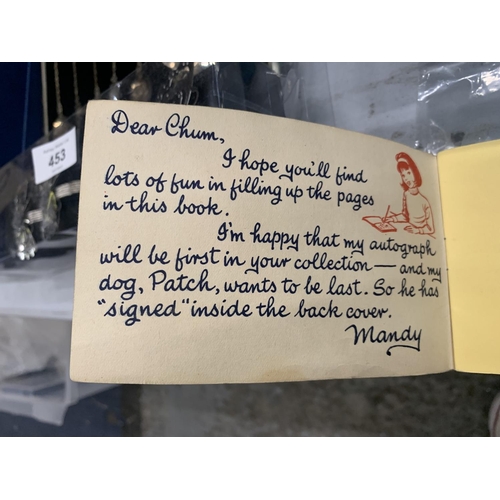 453
Dear Chum,
I hope you'll find
lots of fun in filling up the pages
in this book.
I'm happy that my autograph
will be first in your collection — and my
dog, Patch, wants to be last. So he has
"signed" inside the back cover.
Mandy